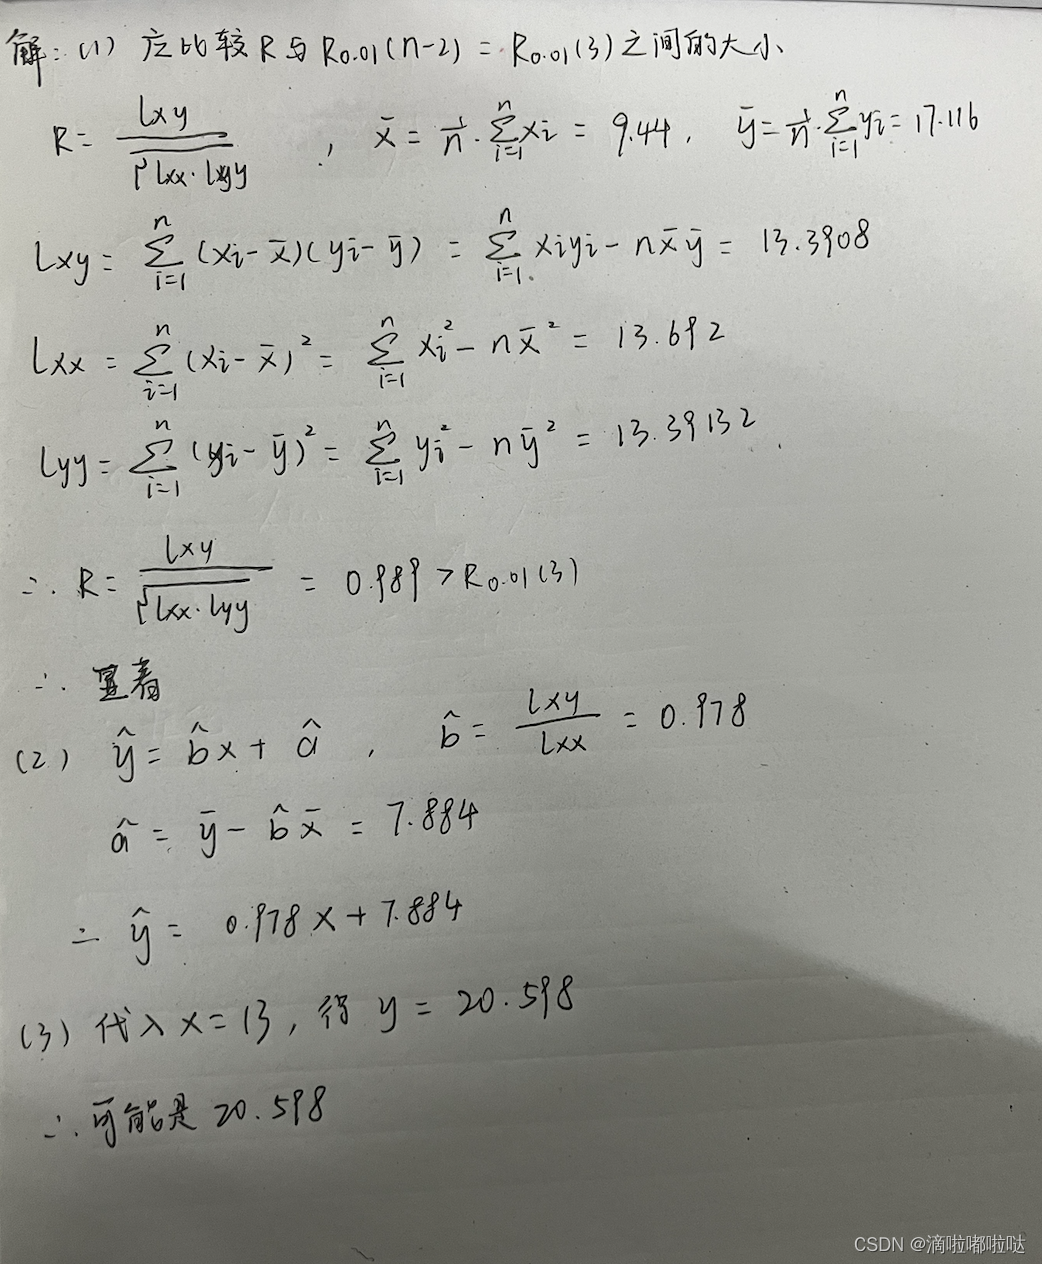 解:(1) 应比较R与R0.01(n-2) = R0.01(3)之间的大小
R= lxy / √lxx·lyy , x̄ = 1/n · Σ(i=1, n) xi = 9.44, ȳ= 1/n · Σ(i=1, n) yi = 17.116
Lxy = Σ(i=1, n) (xi-x̄)(yi-ȳ) = Σ(i=1, n) xiyi - nx̄ȳ = 13.3908
Lxx = Σ(i=1, n) (xi-x̄)² = Σ(i=1, n) xi² - nx̄² = 13.692
Lyy = Σ(i=1, n) (yi-ȳ)² = Σ(i=1, n) yi² - nȳ² = 13.39132
∴ R= lxy / √lxx·lyy = 0.989 > R0.01(3)
∴ 显着
(2) ŷ = b̂x + â , b̂ = lxy / lxx = 0.978
â = ȳ - b̂x̄ = 7.884
∴ ŷ = 0.978x+7.884
(3) 代入x=13, 得 y = 20.598
∴ 可能是20.598
CSDN @滴啦嘟啦哒